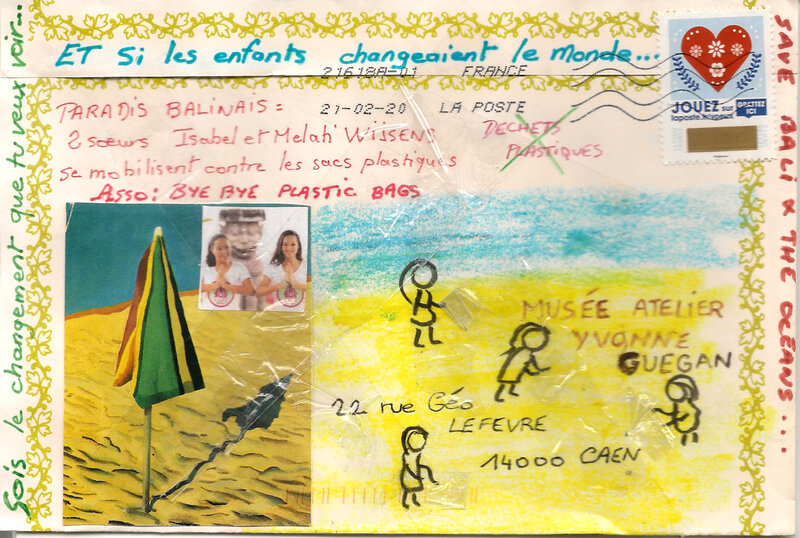 ET Si les enfants changeaient le monde...
21618A-01 FRANCE
21-02-20 LA POSTE
JOUEZ sur
laposte.fr/voeux
GRATTEZ
ICI
PARADIS BALINAIS :
2 sœurs Isabel et Melati WIJSENS
se mobilisent contre les sacs plastiques
Asso : BYE BYE PLASTIC BAGS
DECHETS
PLASTIQUES
Sois le changement que tu veux voir...
SAVE BALI & THE OCÉANS...
MUSÉE ATELIER
YVONNE
GUEGAN
22 rue Géo
LEFEVRE
14000 CAEN